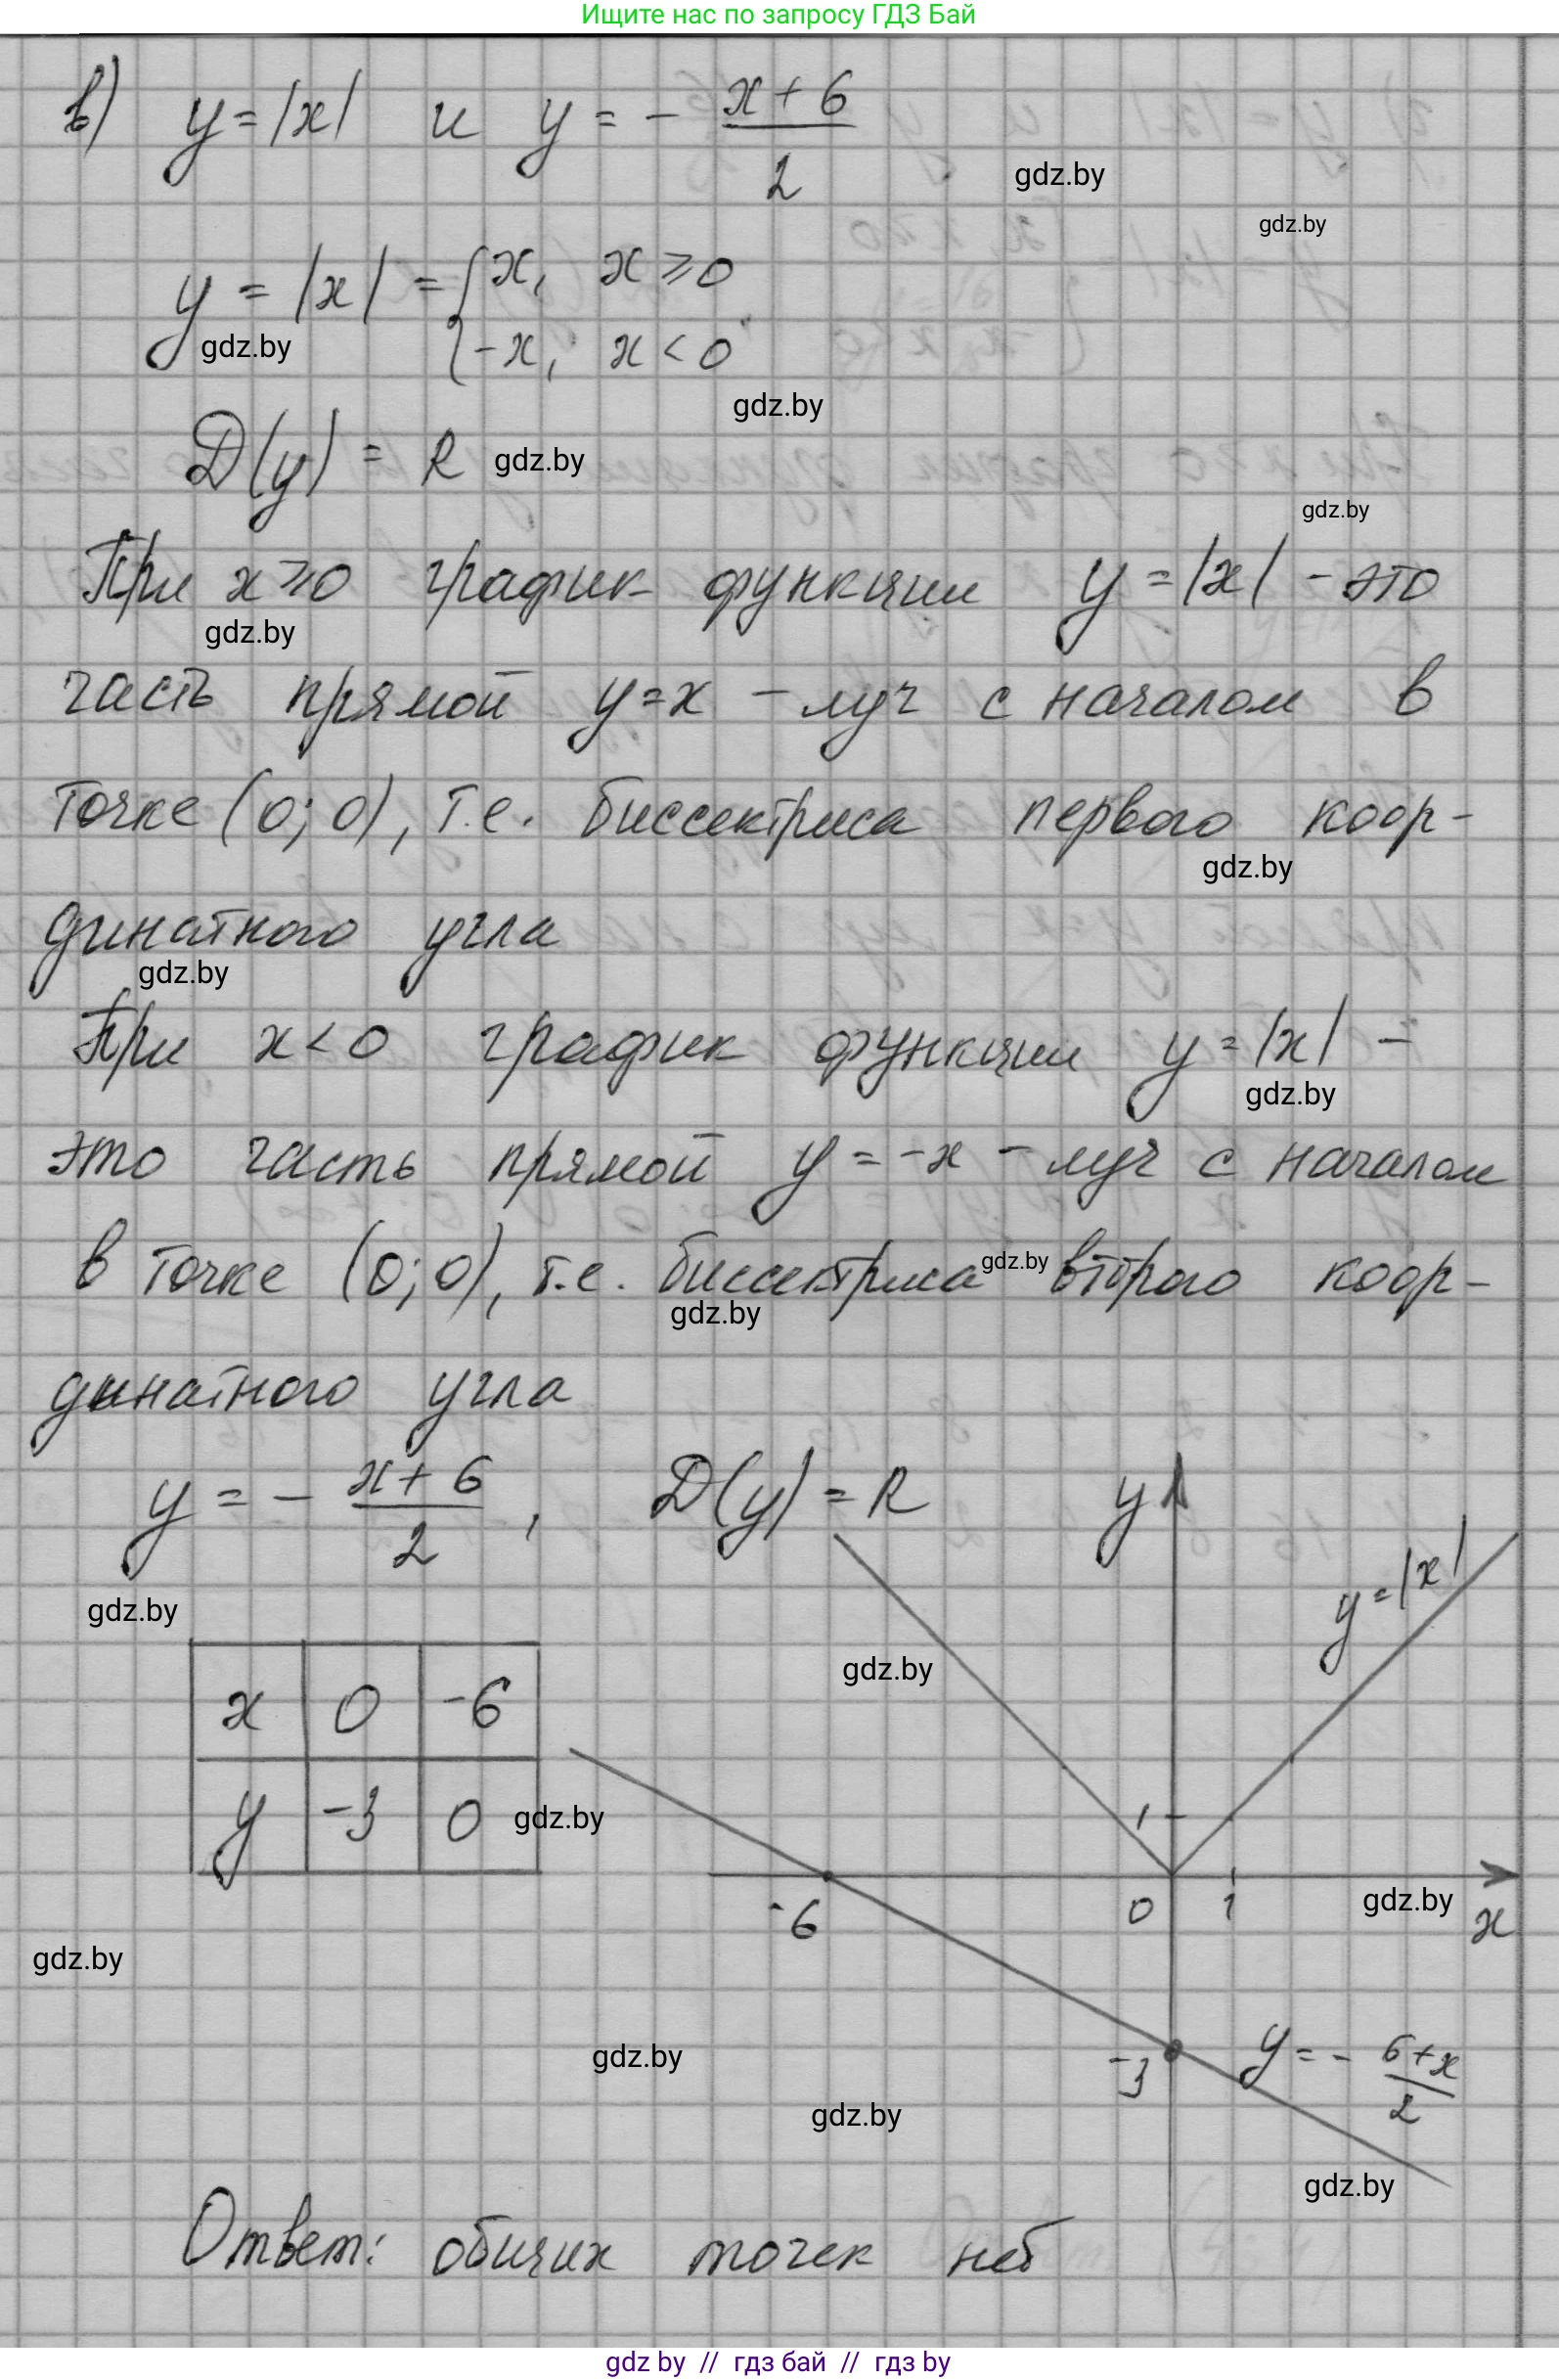 Ищите нас по запросу ГДЗ Бай
в) y = |x| и y = - (x + 6)/2
gdz.by
gdz.by
y = |x| = { x, x ⩾ 0
gdz.by
{ -x, x < 0
gdz.by
D(y) = R gdz.by
gdz.by
При x ⩾ 0 график функции y = |x| - это
gdz.by
часть прямой y = x - луч с началом в
точке (0; 0), т.е. биссектриса первого коор-
gdz.by
динатного угла
gdz.by
При x < 0 график функции y = |x| -
gdz.by
это часть прямой y = -x - луч с началом
в точке (0; 0), т.е. биссектриса gdz.by второго коор-
gdz.by
динатного угла
y = - (x + 6)/2 , D(y) = R
y
y = |x|
gdz.by
gdz.by
x 0 -6
y -3 0 gdz.by
1
-6 0 1 gdz.by x
gdz.by
gdz.by
-3 y = - (6 + x)/2
gdz.by
gdz.by
Ответ: общих точек нет
gdz by // гдз бай // гдз by